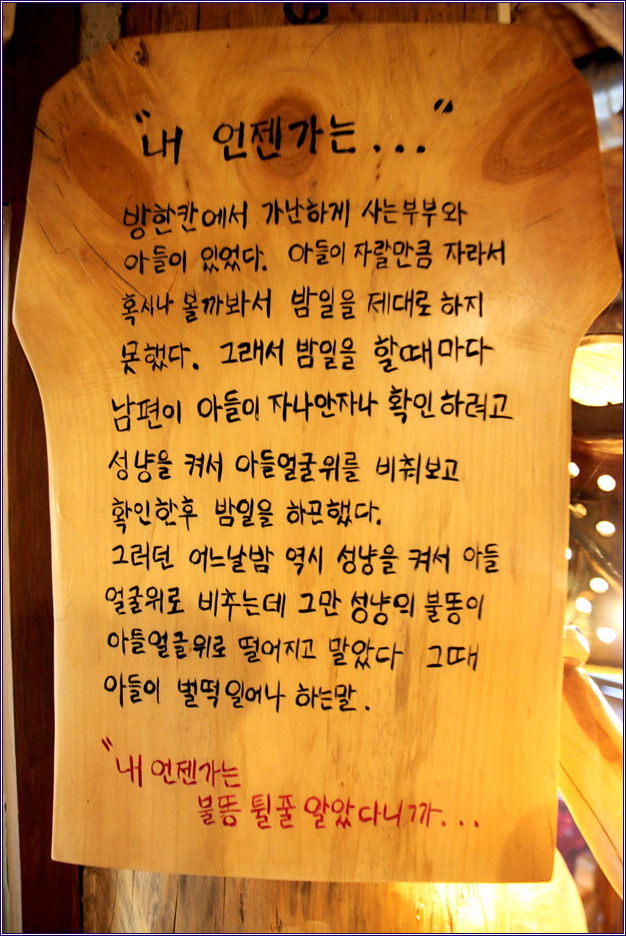 "내 언젠가는..."
방한칸에서 가난하게 사는부부와
아들이 있었다. 아들이 자랄만큼 자라서
혹시나 볼까봐서 밤일을 제대로 하지
못했다. 그래서 밤일을 할때마다
남편이 아들이 자나안자나 확인하려고
성냥을 켜서 아들얼굴위를 비춰보고
확인한후 밤일을 하곤했다.
그러던 어느날밤 역시 성냥을 켜서 아들
얼굴위로 비추는데 그만 성냥의 불똥이
아들얼굴위로 떨어지고 말았다 그때
아들이 벌떡일어나 하는말.
"내 언젠가는
불똥 튈줄 알았다니까...